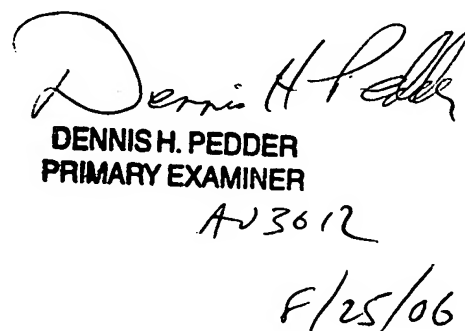 Dennis H Pedder
DENNIS H. PEDDER
PRIMARY EXAMINER
AU 3612
8/25/06